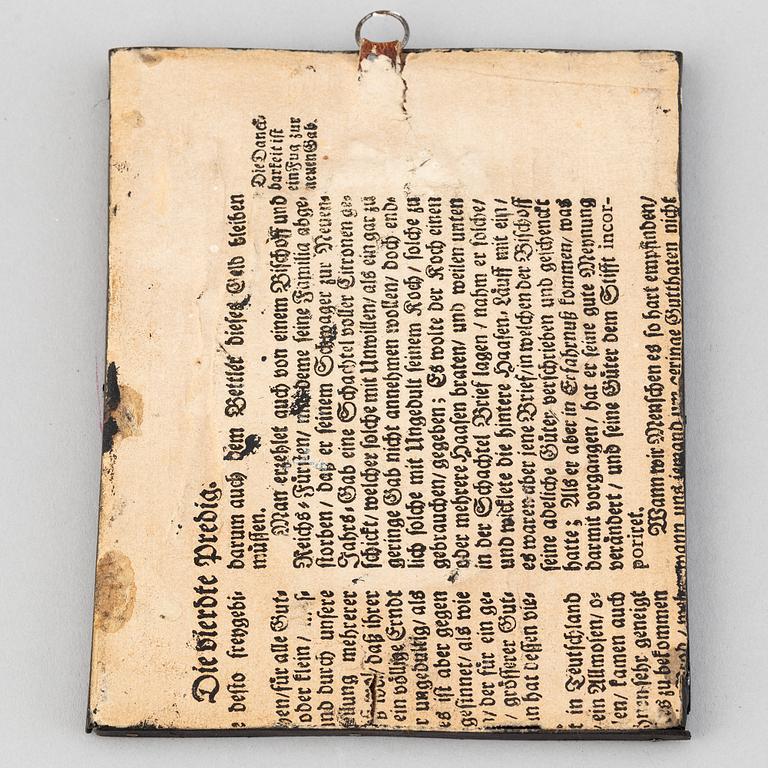 Die vierdte Predig.
desto freygebi-
en/für alle Gut-
oder klein /
ind durch unsere
ilung mehrerer
daß ihrer
ein völlige Erndt
r ungedultig/ als
es ist aber gegen
gesinnet/ als wie
/ der für ein ge-
/ grösserer Gut-
n hat dessen vie-
t in Teutschland
ein Allmosen/ o-
en/ kamen auch
sehr geneigt
zu bekommen
darum auch dem Bettler dieses Geld bleiben
müssen.
Man erzehlet auch von einem Bischoff und
Reichs-Fürsten/ deme seine Familia abge-
storben/ daß er seinem Schwager zur Neuen-
Jahrs-Gab eine Schachtel voller Citronen ge-
schickt/ welcher solche mit Unwillen/ als ein gar zu
geringe Gab nicht annehmen wollen/ doch end-
lich solche mit Ungedult seinem Koch/ solche zu
gebrauchen/ gegeben; Es wolte der Koch einen
oder mehrere Haasen braten/ und weilen unten
in der Schachtel Brief lagen / nahm er solche/
und wicklete die hintere Haasen-Läuff mit ein/
es waren aber jene Brief/ in welchen der Bischoff
seine adeliche Güter verschrieben und geschenckt
hatte; Als er aber in Erfahrnuß kommen/ was
darmit vorgangen/ hat er seine gute Meynung
verändert/ und seine Güter dem Stifft incor-
poriret.
Wann wir Menschen es so hart empfinden/
wann uns jemand um geringe Gutthaten nicht
Die Danck-
barkeit ist
ein Fug zur
neuen Gab.